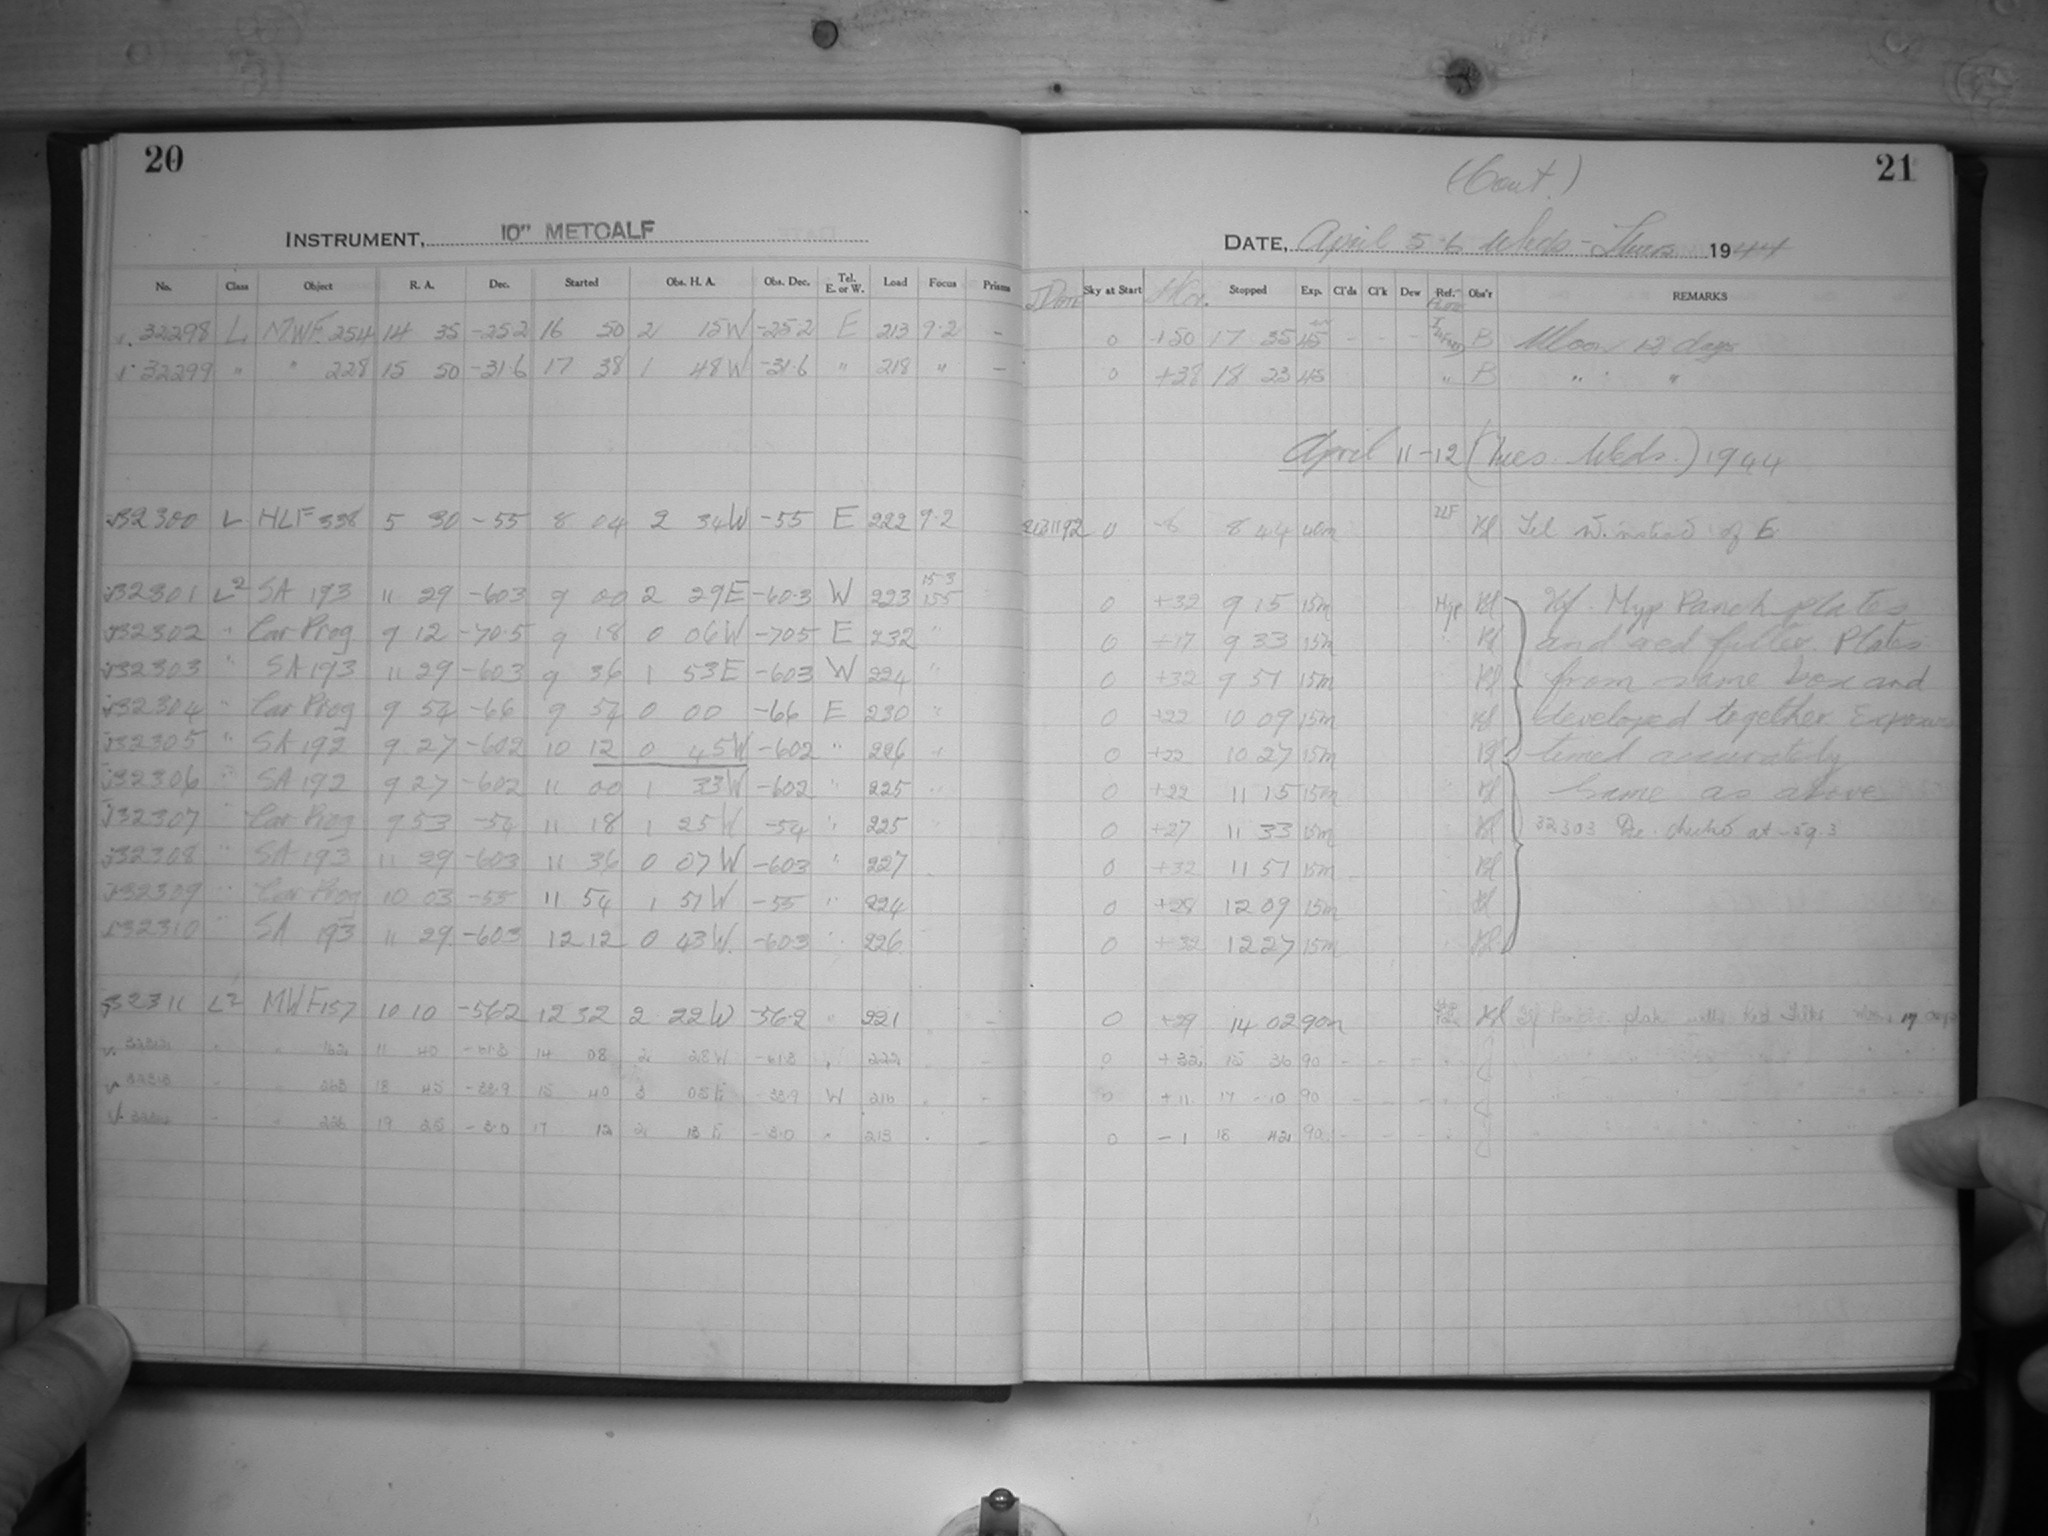 20
INSTRUMENT, 10" METCALF
No. Class Object R. A. Dec. Started Obs. H. A. Obs. Dec. Tel. E. or W. Load Focus Prisms
32298 L MWF 254 14 35 -25.2 16 50 2 15W -25.2 E 213 9.2 -
32299 " " 228 15 50 -31.6 17 38 1 48W -31.6 " 218 " -
32300 L HLF 338 5 30 -55 8 04 2 34W -55 E 222 9.2
32301 L2 SA 193 11 29 -603 9 00 2 29E -60.3 W 223 15.3 155
32302 " Car Prog 9 12 -70.5 9 18 0 06W -705 E 232 "
32303 " SA 193 11 29 -603 9 36 1 53E -603 W 224 "
32304 " Car Prog 9 54 -66 9 54 0 00 -66 E 230 "
32305 " SA 192 9 27 -602 10 12 0 45W -602 " 226 "
32306 " SA 192 9 27 -602 11 00 1 33W -602 " 225 "
32307 " Car Prog 9 53 -54 11 18 1 25W -54 " 225
32308 " SA 193 11 29 -603 11 36 0 07W -603 " 227
32309 " Car Prog 10 03 -55 11 54 1 51W -55 " 224
32310 " SA 193 11 29 -603 12 12 0 43W -603 " 226
32311 L2 MWF 157 10 10 -56.2 12 32 2 22W -56.2 " 221 -
11 40 -61.3 14 08 2 28W -61.3 222 -
18 45 -33.9 15 40 3 05E -33.9 W 216 -
226 19 25 -3.0 17 12 2 13E -3.0 " 213 -
(Cont.)
21
DATE, April 5-6 Weds-Thurs 1944
Sky at Start Stopped Exp. Cl'ds Cl'k Dew Ref. Obs'r REMARKS
0 +50 17 35 45 - - - B Moon 12 days
0 +38 18 23 45 " B " "
April 11-12 (Tues. Weds.) 1944
0 -6 8 44 40m Tel W. instead of E.
0 +32 9 15 15m Hyp Hyp Panch plates
0 +17 9 33 15m and red filter. Plates
0 +32 9 51 15m from same box and
0 +22 10 09 15m developed together. Exposure
0 +22 10 27 15m timed accurately
0 +22 11 15 15m Same as above
0 +27 11 33 15m 32303 at -59.3
0 +32 11 51 15m
0 +28 12 09 15m
0 +32 12 27 15m
0 +29 14 02 90m
0 +32 15 38 90 - - -
0 +11 17 10 90 - - -
0 -1 18 42 90 - - -